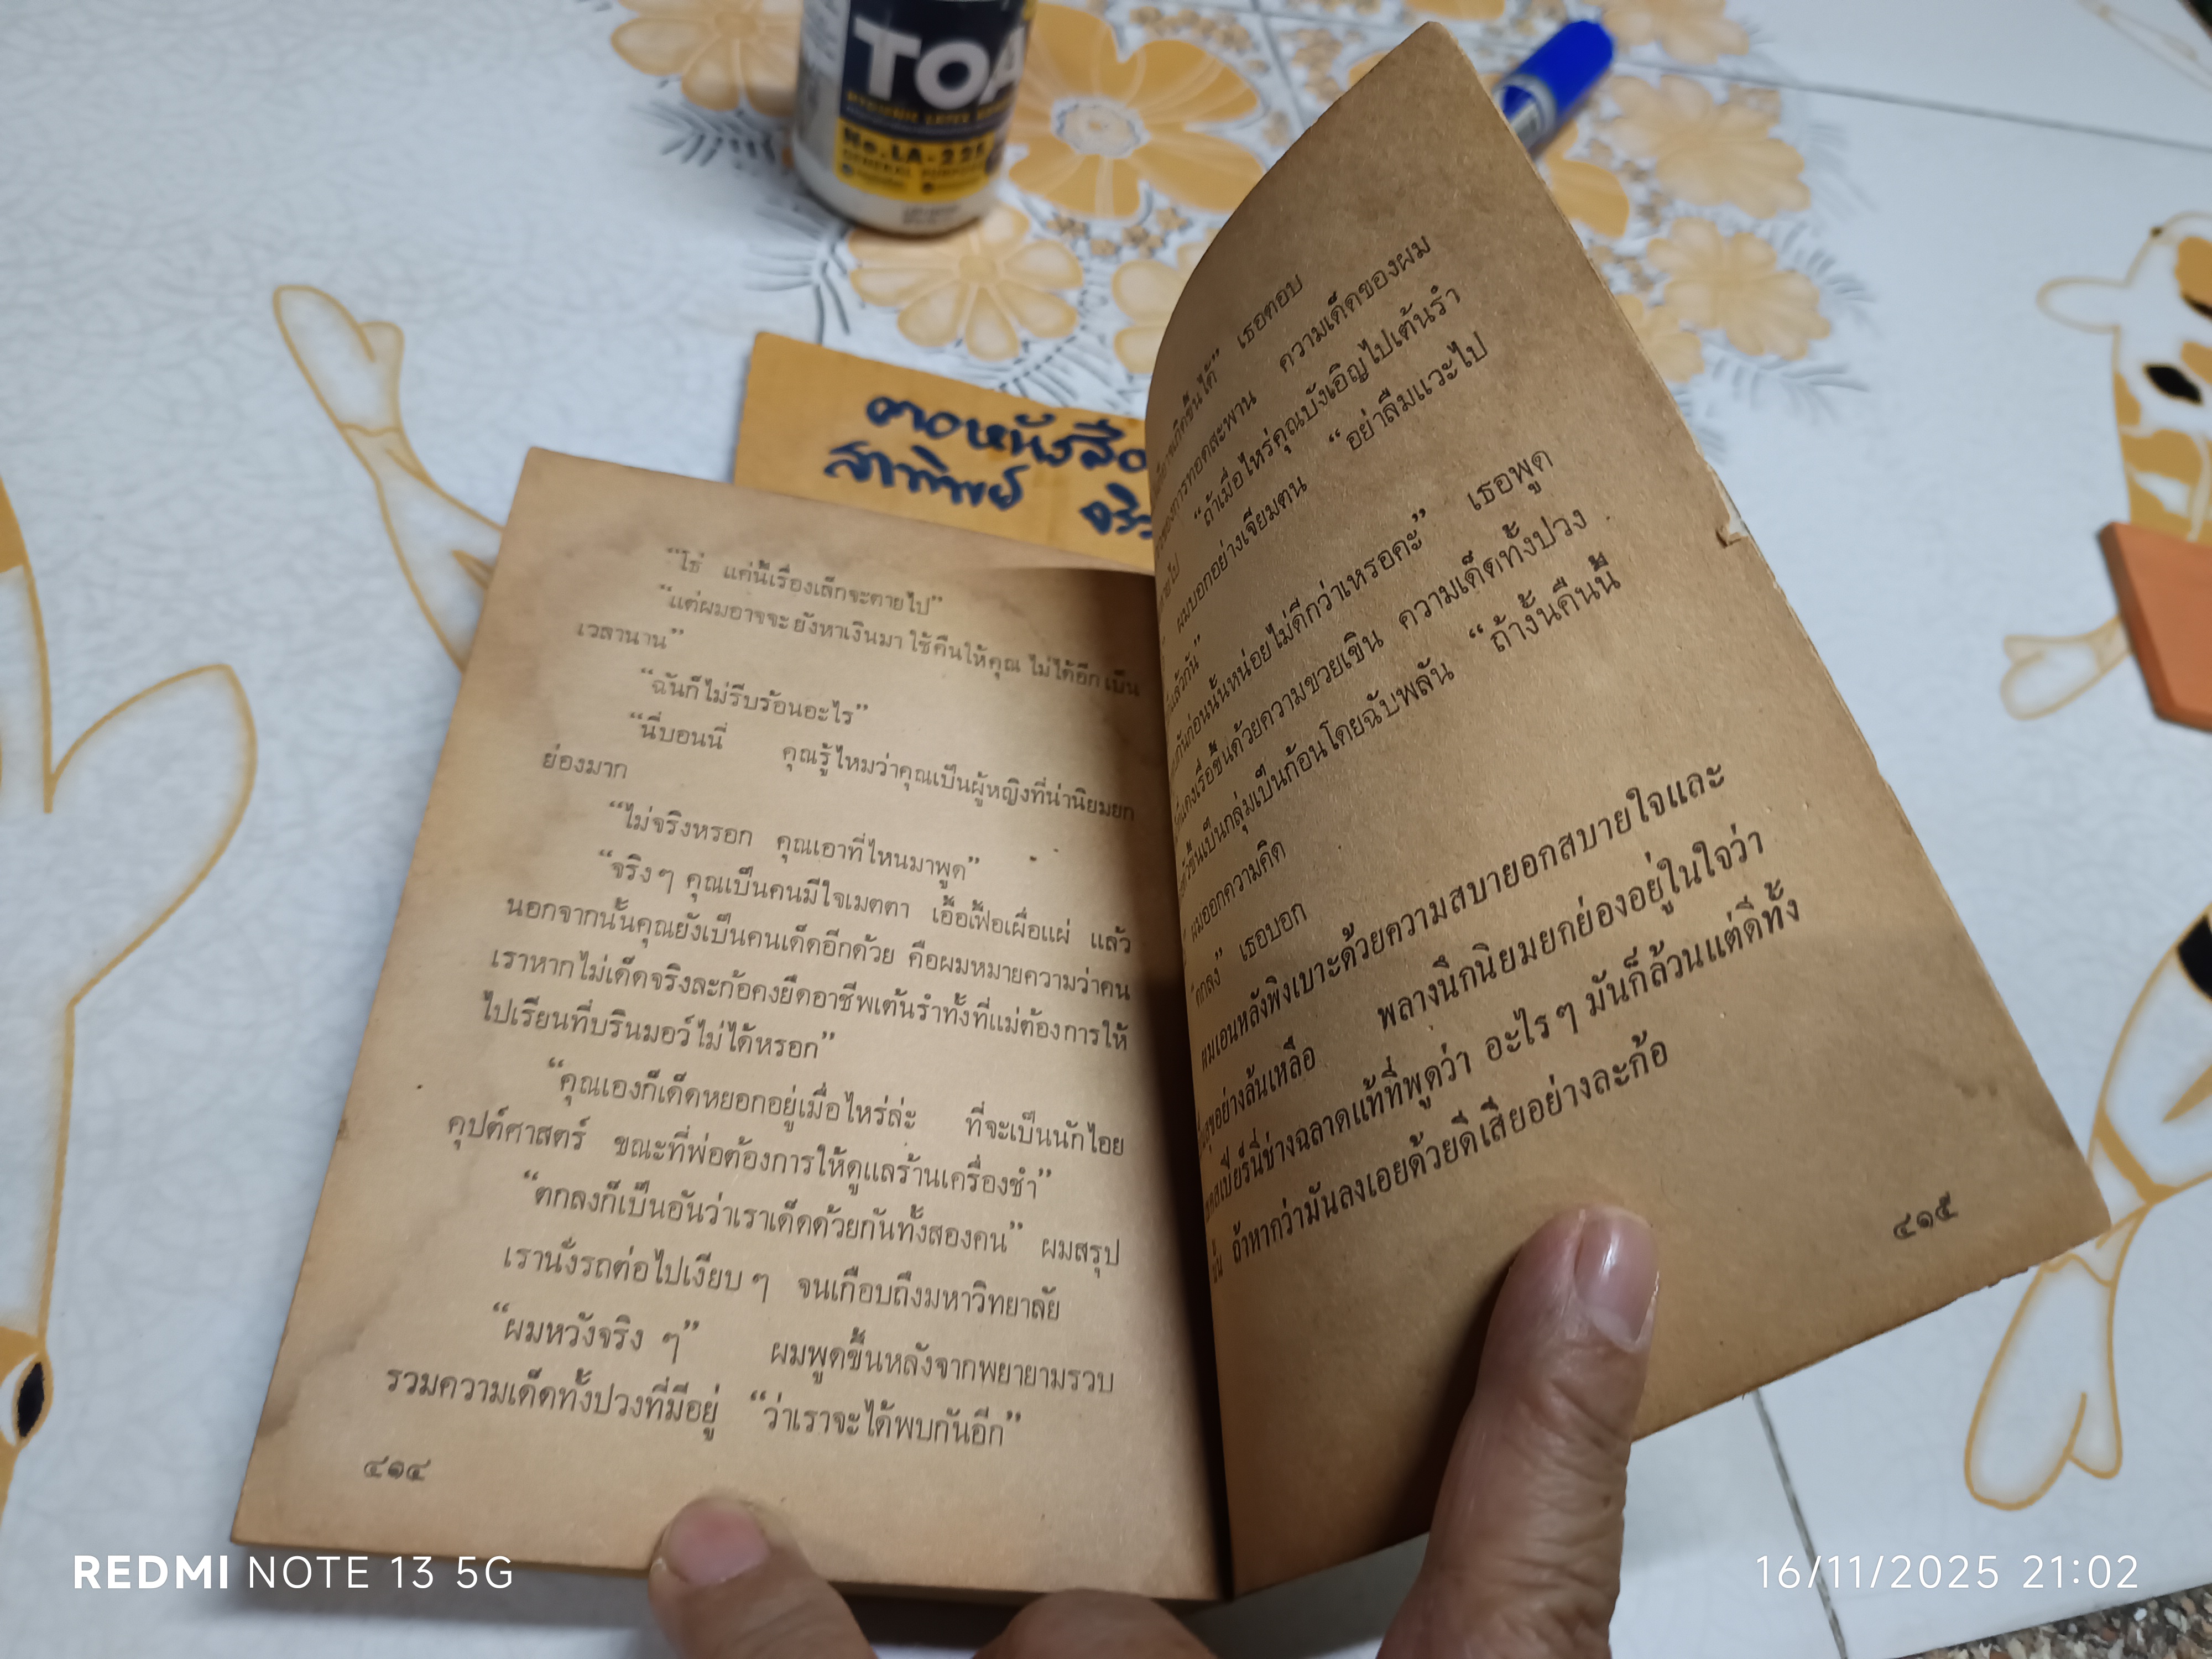 TOA
No.LA-22
GENERAL PURPOSE
ตาอหนังสือ
สาทิพย์
“โธ่ แค่นี้เรื่องเล็กจะตายไป”
“แต่ผมอาจจะยังหาเงินมาใช้คืนให้คุณ ไม่ได้อีกเป็น
เวลานาน”
“ฉันก็ไม่รีบร้อนอะไร”
“นี่บอนนี่ คุณรู้ไหมว่าคุณเป็นผู้หญิงที่น่านิยมยก
ย่องมาก
“ไม่จริงหรอก คุณเอาที่ไหนมาพูด”
“จริงๆ คุณเป็นคนมีใจเมตตา เอื้อเฟื้อเผื่อแผ่ แล้ว
นอกจากนั้นคุณยังเป็นคนเด็ดอีกด้วย คือผมหมายความว่าคน
เราหากไม่เด็ดจริงละก้อคงยึดอาชีพเต้นรำทั้งที่แม่ต้องการให้
ไปเรียนที่บรินมอว์ไม่ได้หรอก”
“คุณเองก็เด็ดหยอกอยู่เมื่อไหร่ล่ะ ที่จะเป็นนักไอย
คุปต์ศาสตร์ ขณะที่พ่อต้องการให้ดูแลร้านเครื่องชำ”
“ตกลงก็เป็นอันว่าเราเด็ดด้วยกันทั้งสองคน” ผมสรุป
เรานั่งรถต่อไปเงียบๆ จนเกือบถึงมหาวิทยาลัย
“ผมหวังจริง ๆ” ผมพูดขึ้นหลังจากพยายามรวบ
รวมความเด็ดทั้งปวงที่มีอยู่ “ว่าเราจะได้พบกันอีก”
๔๑๔
เธอตอบ
ของการทอดสะพาน ความเด็ดของผม
“ถ้าเมื่อไหร่คุณบังเอิญไปเต้นรำ
ผมบอกอย่างเจียมตน “อย่าลืมแวะไป
แล้วกัน”
กันก่อนนั้นหน่อยไม่ดีกว่าเหรอคะ” เธอพูด
แดงเรื่อขึ้นด้วยความขวยเขิน ความเด็ดทั้งปวง
ขึ้นเป็นกลุ่มเป็นก้อนโดยฉับพลัน “ถ้างั้นคืนนี้
ผมออกความคิด
“ตกลง” เธอบอก
ผมเอนหลังพิงเบาะด้วยความสบายอกสบายใจและ
สุขอย่างล้นเหลือ พลางนึกนิยมยกย่องอยู่ในใจว่า
เชคสเปียร์นี่ช่างฉลาดแท้ที่พูดว่า อะไรๆ มันก็ล้วนแต่ดีทั้ง
นั้น ถ้าหากว่ามันลงเอยด้วยดีเสียอย่างละก้อ
๔๑๕
REDMI NOTE 13 5G
16/11/2025 21:02